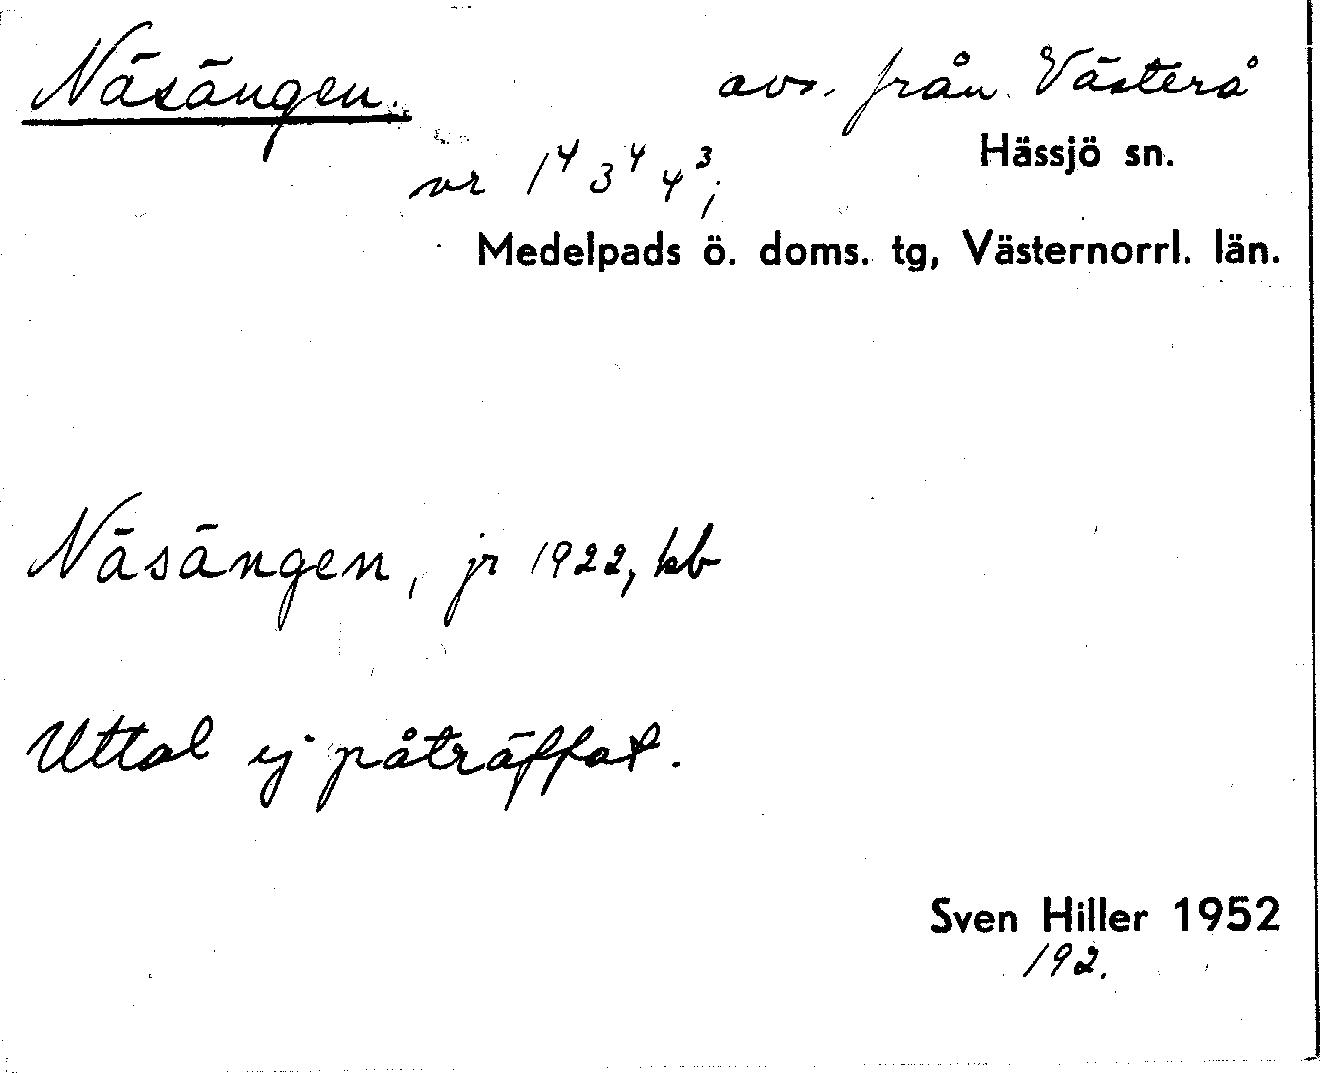 Näsängen. avs. från Västerå
Hässjö sn.
nr 1⁴ 3⁴ 4³;
Medelpads ö. doms. tg, Västernorrl. län.
Näsängen, jr 1922, kb
Uttal ej påträffat.
Sven Hiller 1952
192.